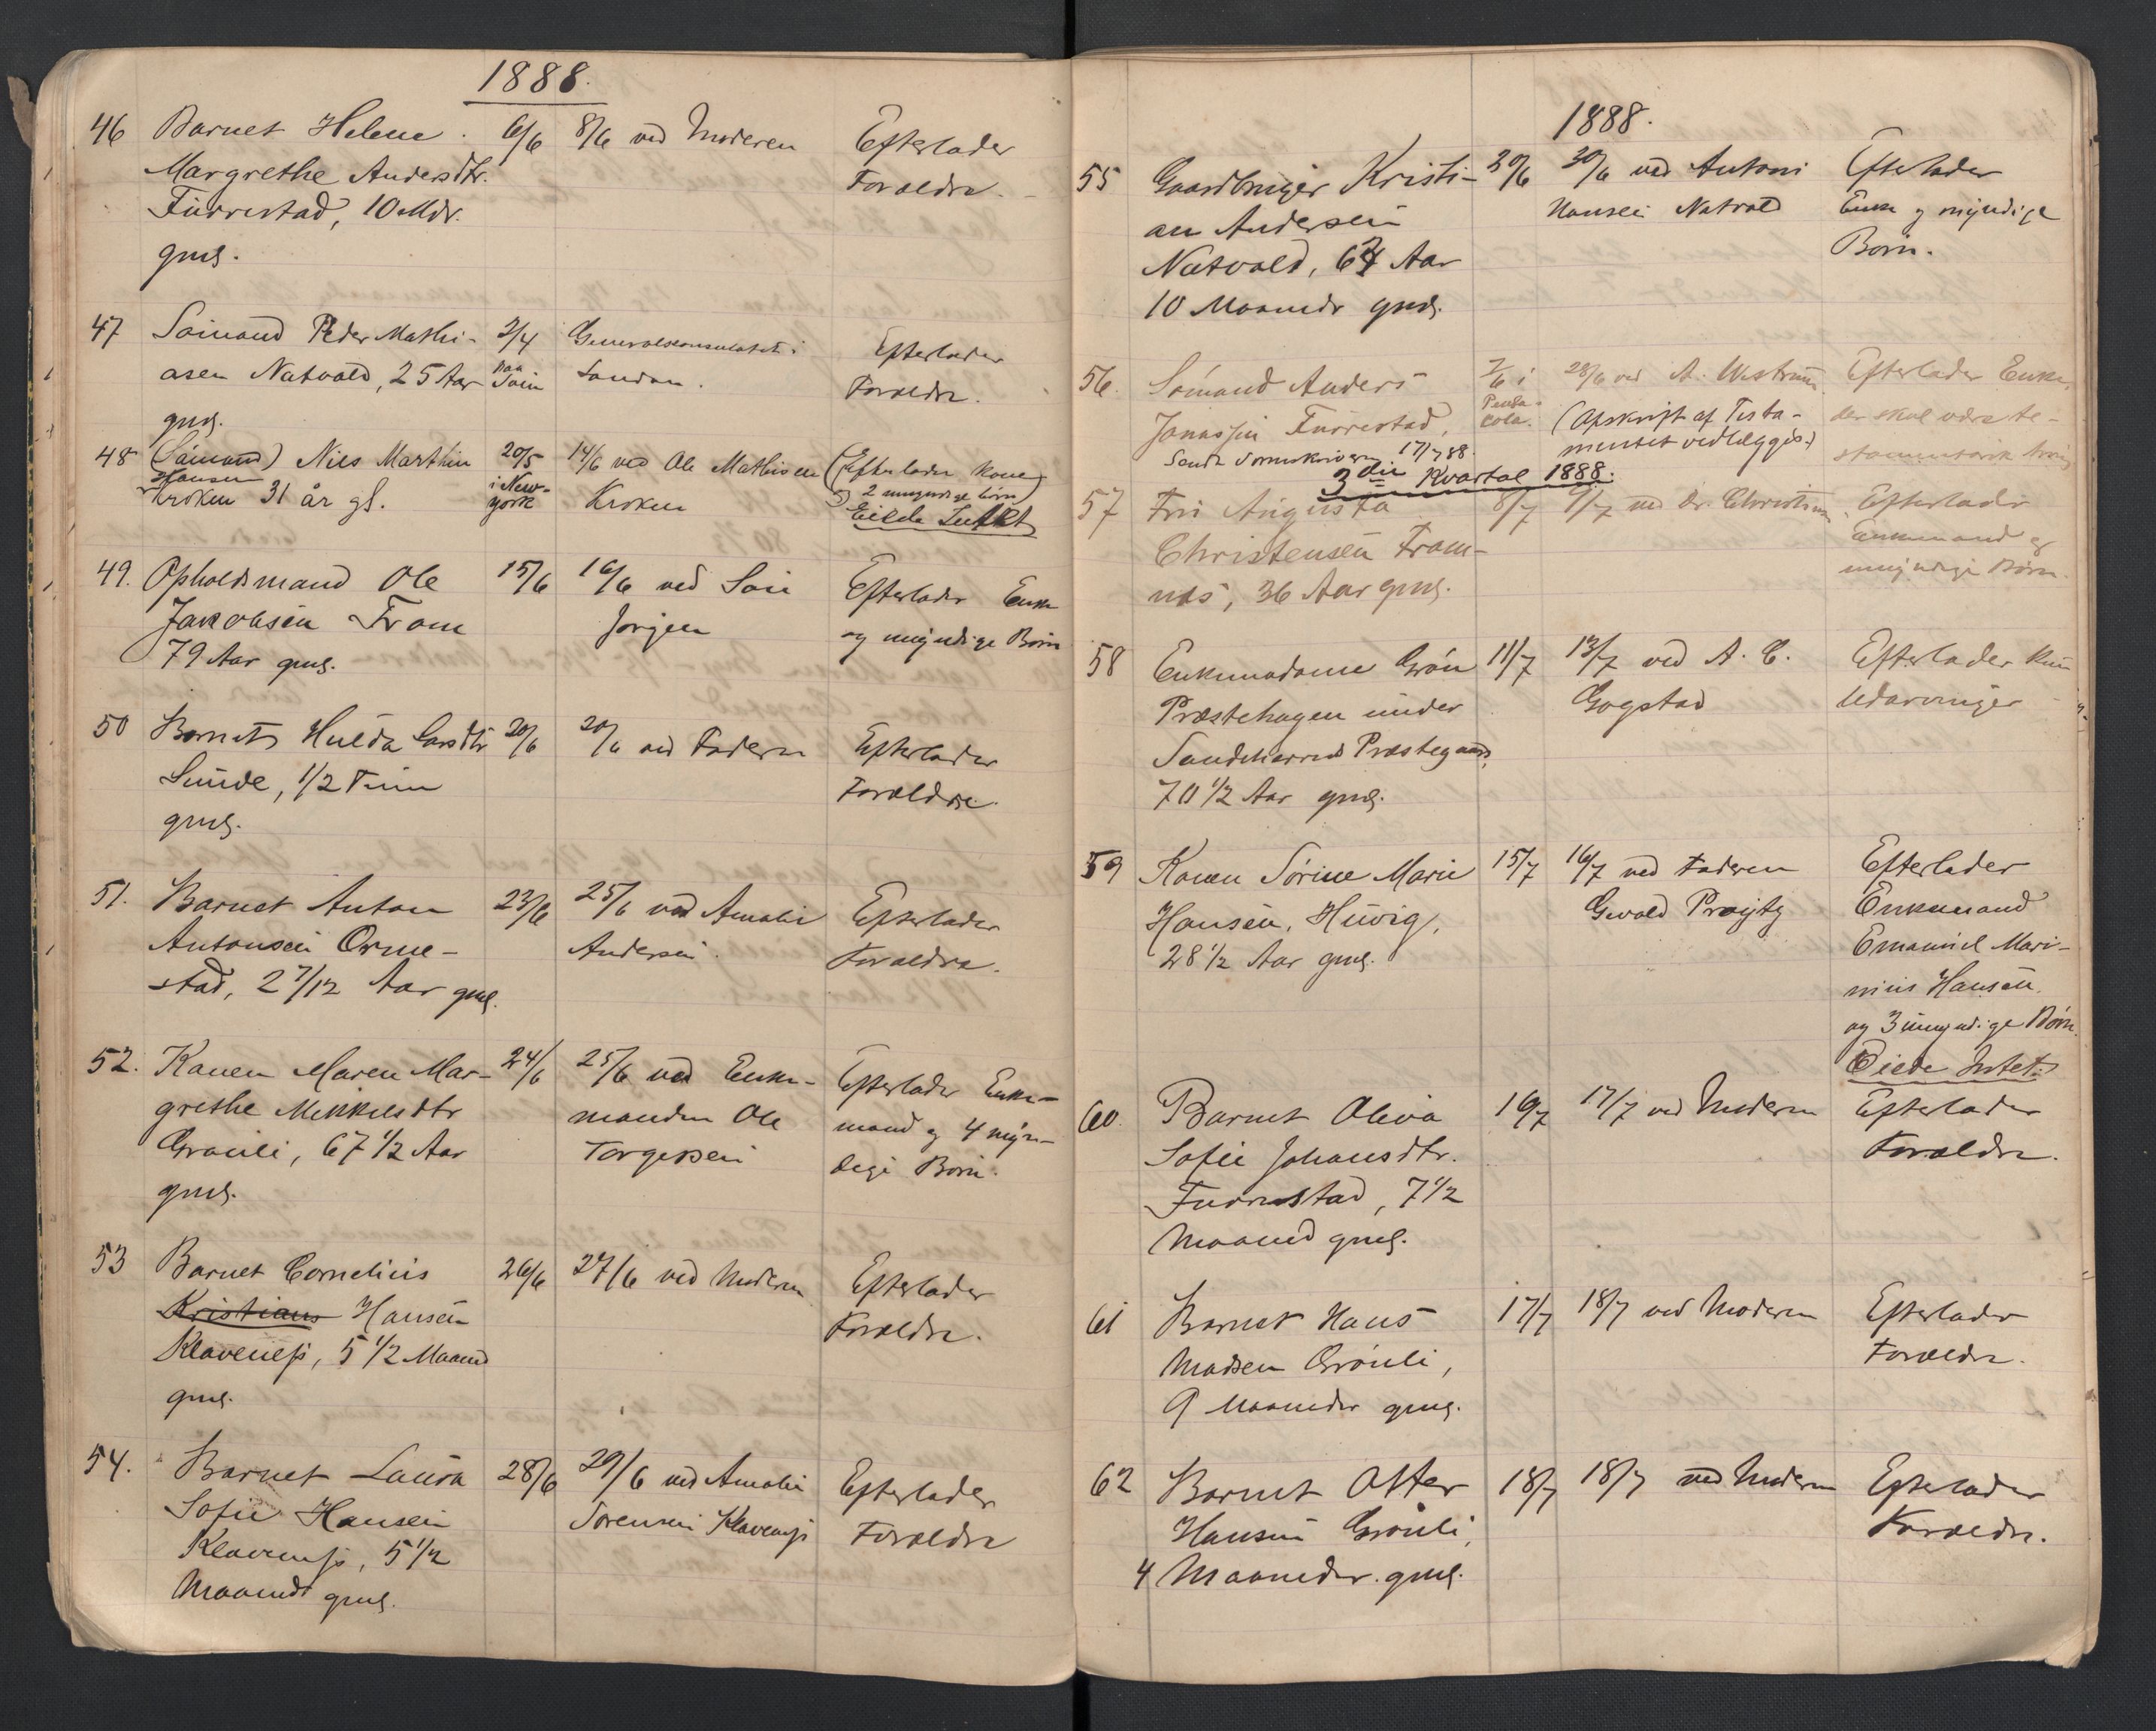 1888.
46 Barnet Helene 6/6 8/6 ved Moderen Efterlader
Margrethe Andersdtr. Forældre.
Furrestad, 10 Mdr.
gml.
47 Sömand Peder Mathi- 2/4 Generalconsulatet i Efterlader
asen Natvold, 25 Aar paa Söen London. Forældre.
gml.
48 (Sömand) Nils Marthin 20/5 14/6 ved Ole Mathisen (Efterlader kone
Hansen i New- og 2 umyndige börn)
Kroken 31 år gl. york Kroken Eiede Intet
49. Opholdsmand Ole 15/6 16/6 ved Sön Efterlader Enke
Jakobsen Fram Jörgen og myndige Börn
79 Aar gml.
50 Barnet Hulda Larsdtr 20/6 20/6 ved Faderen Efterlader
Sunde, 1/2 Time Forældre.
gml.
51. Barnet Anton 23/6 25/6 ved Amalie Efterlader
Antonsen Orme- Andersen. Forældre.
stad, 2 7/12 Aar gml.
52. Konen Maren Mar- 24/6 25/6 ved Enke- Efterlader Enke-
grethe Mikkelsdtr manden Ole mand og 4 myn-
Grönli, 67 1/2 Aar Torgersen dige Börn.
gml.
53 Barnet Cornelius 26/6 27/6 ved Moderen Efterlader
Kristians Hansen Forældre.
Klaveness, 5 1/2 Maaned
gml.
54. Barnet Laura 28/6 29/6 ved Amalie Efterlader
Sofie Hansen Sörensen Klaveness Forældre
Klaveness, 5 1/2
Maaned gml.
1888.
55 Gaardbruger Kristi- 30/6 30/6 ved Antoni Efterlader
an Andersen Hansen Natvold Enke og myndige
Natvold, 64 Aar Börn.
10 Maaneder gml.
56. Sömand Anders 7/6 i 28/6 ved A. Westrum Efterlader Enke,
Jonassen Furrestad, Pensa- (Afskrift af Testa- der skal være te-
cola. mentet vedlægges.) stamentarisk Arving
Sendt Sorenskriveren 17/7 88.
3die Kvartal 1888.
57 Fru Augusta 8/7 9/7 ved Dr. Christensen Efterlader
Christensen Fram- Enkemand og
næs, 36 Aar gml. umyndige Börn.
58 Enkemadame Grön 11/7 13/7 ved A. C. Efterlader kun
Præstehagen under Gogstad Udarvinger
Sandeherreds Præstegaard,
70 1/2 Aar gml.
59 Konen Sörine Marie 15/7 16/7 ved Faderen Efterlader
Hansen, Huvig, Enkemand
28 1/2 Aar gml. Emanuel Mari-
nius Hansen
og 3 umyndige Börn.
Eiede Intet.
60. Barnet Oliva 16/7 17/7 ved Moderen Efterlader
Sofie Johansdtr. Forældre.
Furrestad, 7 1/2
Maaned gml.
61 Barnet Hans 17/7 18/7 ved Moderen Efterlader
Madsen Grönli, Forældre.
9 Maaneder gml.
62 Barnet Otter 18/7 18/7 ved Moderen Efterlader
Hansen Grönli, Forældre.
4 Maaneder gml.